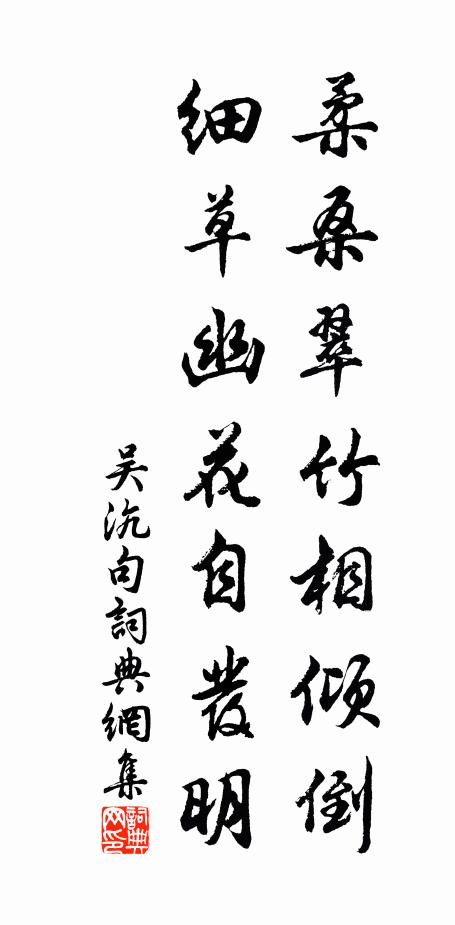 柔桑翠竹相傾倒
細草幽花自發明
吴沆句詞典網集
詞典网印